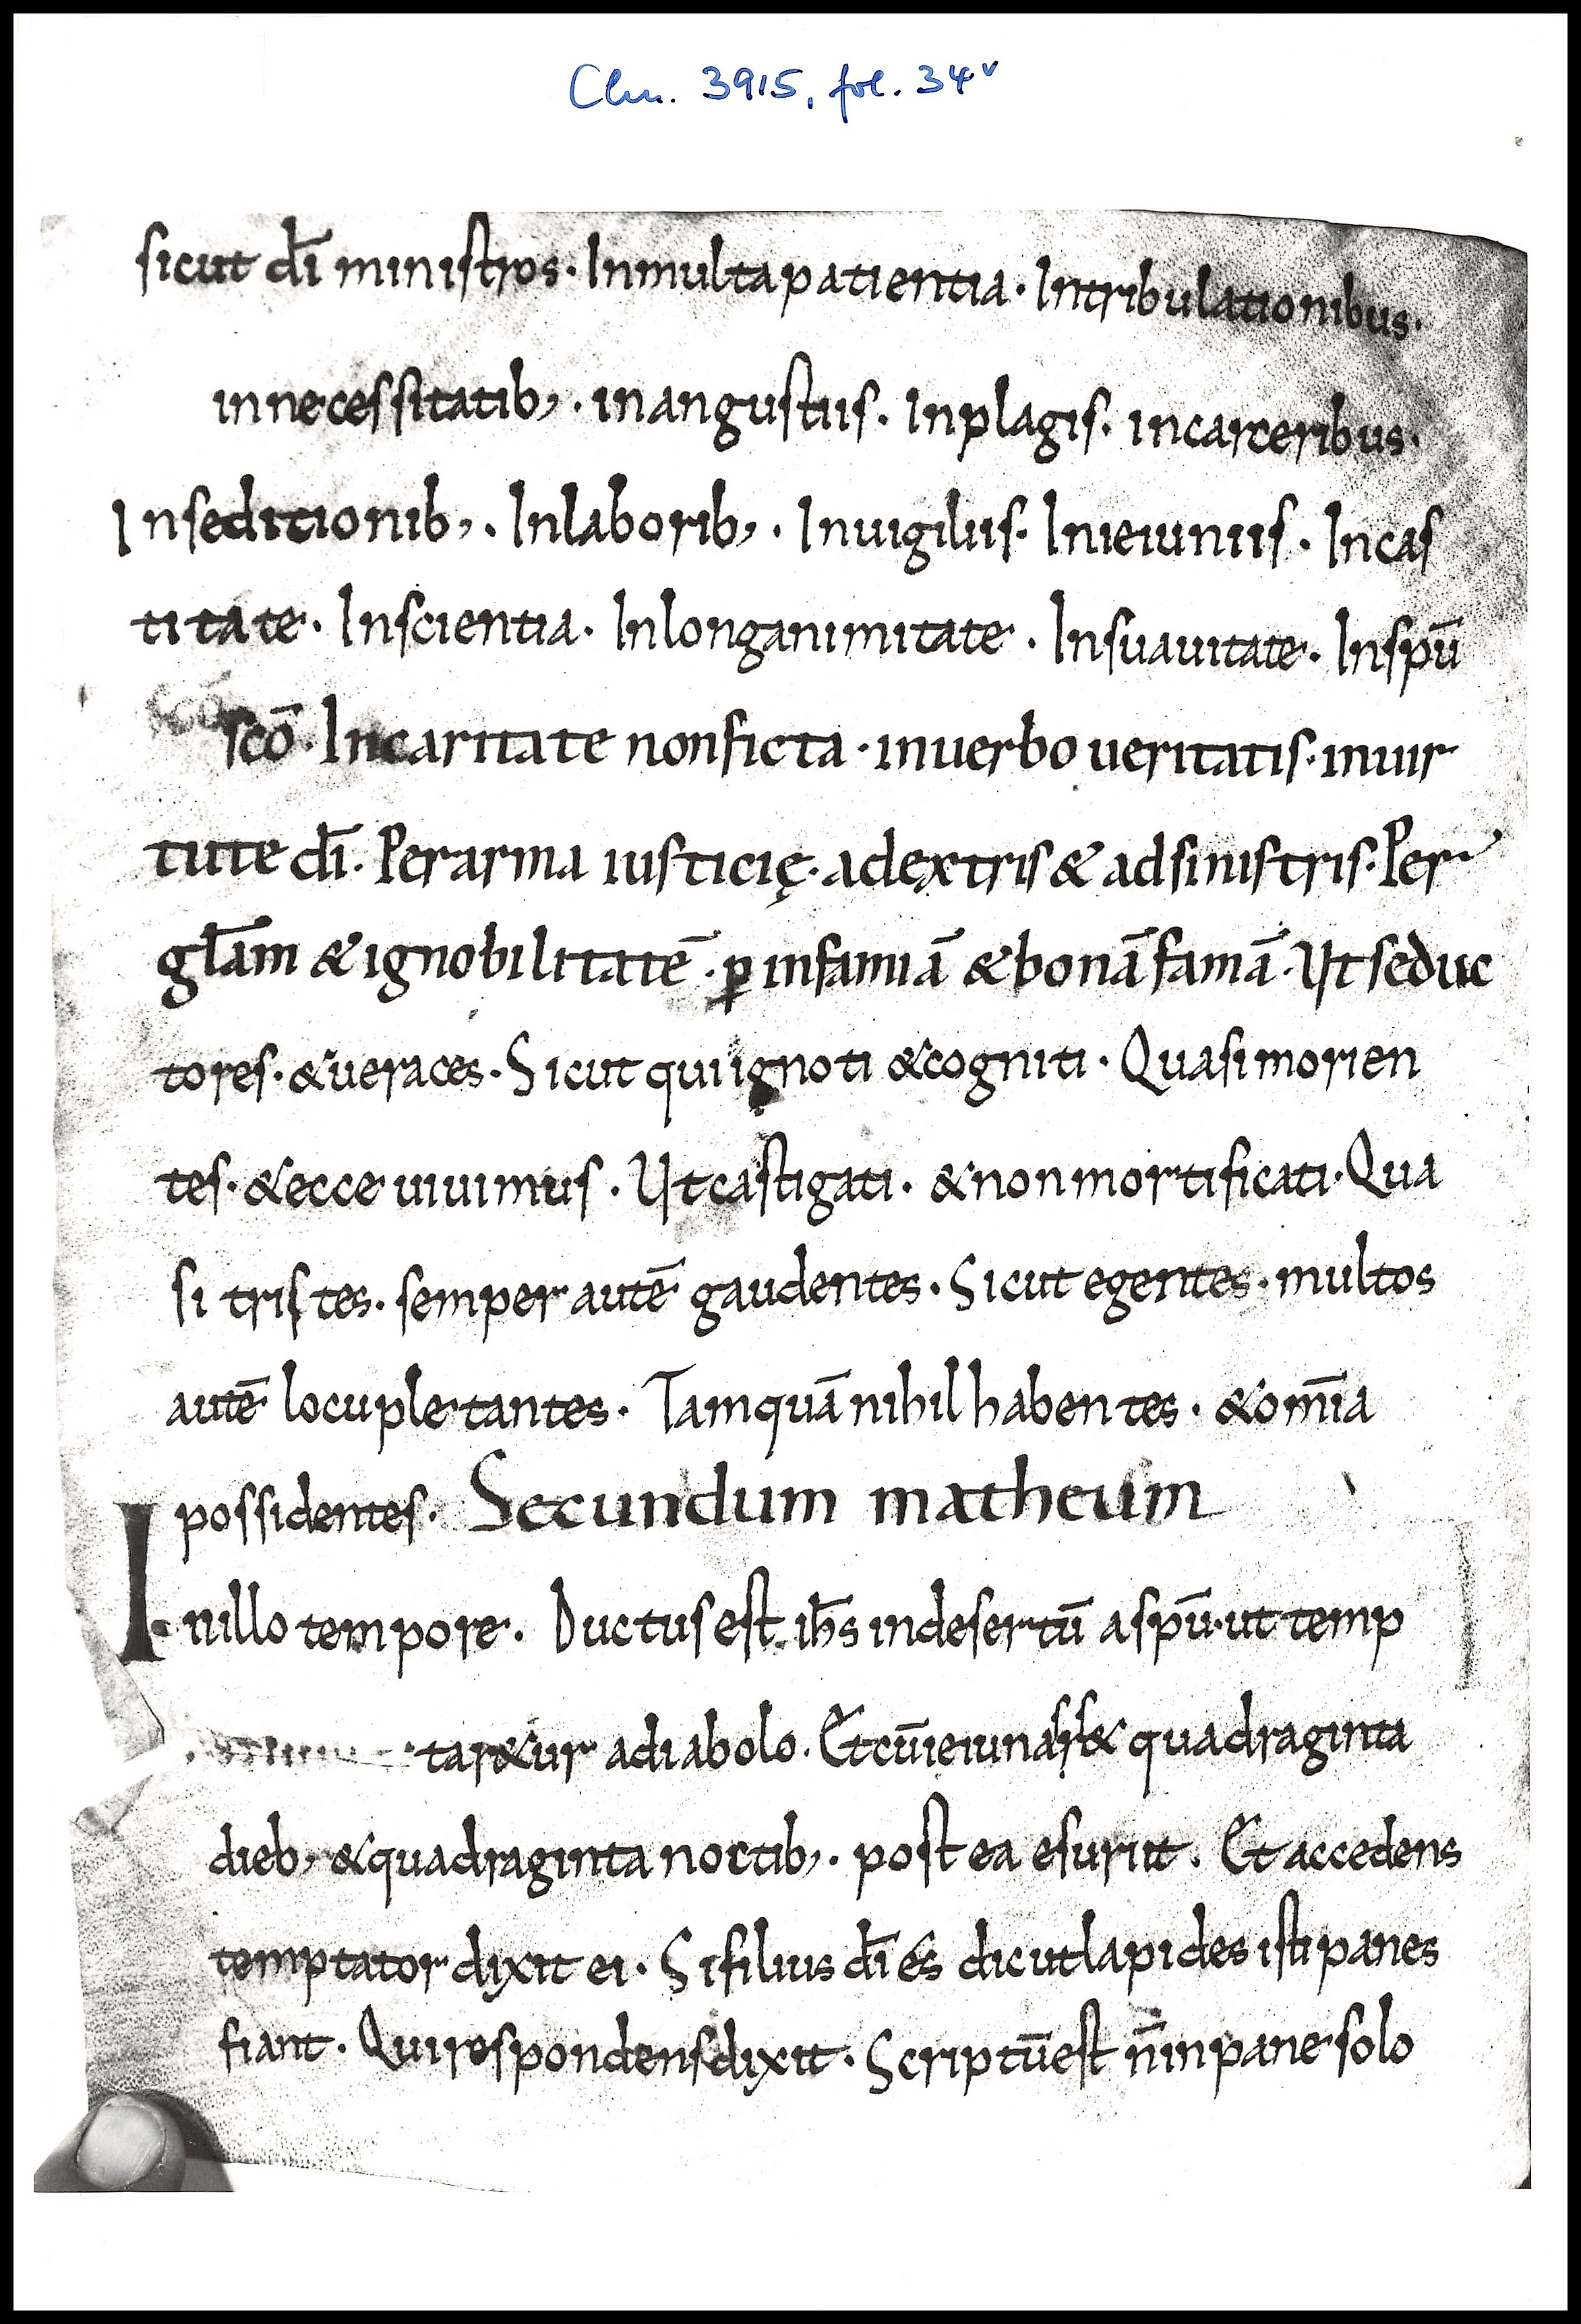 Clm. 3915, fol. 34v
sicut dī ministros· Inmultapatientia· Intribulationibus·
innecessitatib,· inangustiis· Inplagis· incarceribus·
Inseditionib,· Inlaborib,· Inuigiliis· Inieiuniis· Incas
titate· Inscientia· Inlonganimitate· Insuauitate· Inspū
scō· Incaritate nonficta· inuerbo ueritatis· inuir
tute dī· Perarma iusticię· adextris & adsinistris· Per
glām & ignobilitatē· ꝑ infamiā & bonā famā· Ut seduc
tores· & ueraces· Sicut qui ignoti & cogniti· Quasi morien
tes· & ecce uiuimus· Ut castigati· & non mortificati· Qua
si tristes· semper autē gaudentes· Sicut egentes· multos
autē locupletantes· Tamquā nihil habentes· & om̄ia
possidentes· Secundum matheum
Inillo tempore· Ductus est ih̄s indesertū aspū· ut temp
tar&ur adiabolo· Et cū ieiunass& quadraginta
dieb, & quadraginta noctib,· postea esuriit· Et accedens
temptator dixit ei· Si filius dī es dic ut lapides isti panes
fiant· Qui respondens dixit· Scriptū est n̄ inpane solo